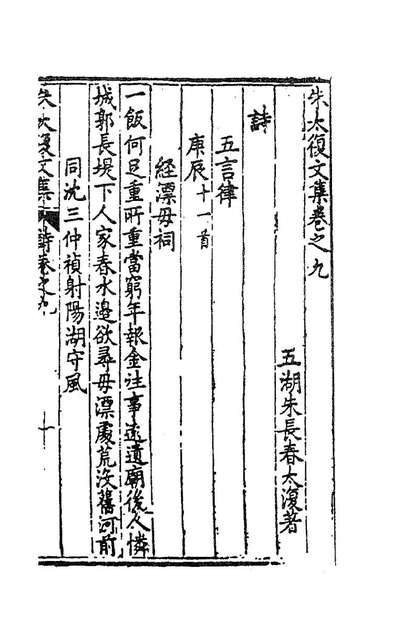 朱太復文集卷之九
五湖朱長春太復著
詩
五言律
庚辰十一首
經漂母祠
一飯何足重所重當窮年報金往事遠遺廟後人憐
城郭長堤下人家春水邊欲尋母漂處荒沒舊河前
同沈三仲禎射陽湖守風
朱太復文集 詩卷之九 十